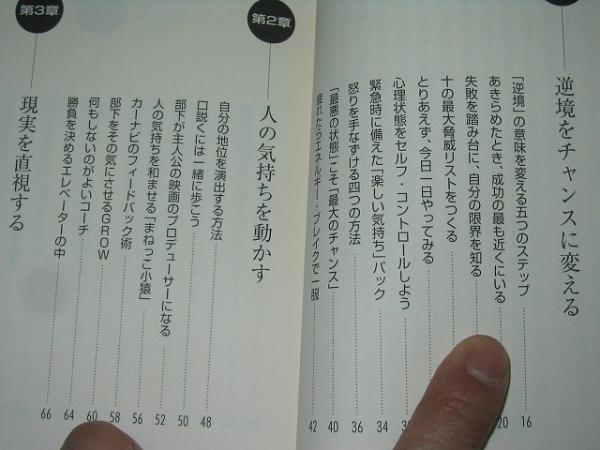 逆境をチャンスに変える
「逆境」の意味を変える五つのステップ 16
あきらめたとき、成功の最も近くにいる 20
失敗を踏み台に、自分の限界を知る
十の最大脅威リストをつくる
とりあえず、今日一日やってみる
心理状態をセルフ・コントロールしよう
緊急時に備えた「楽しい気持ち」パック 34
怒りを手なずける四つの方法 36
「最悪の状態」こそ「最大のチャンス」 40
疲れたらエネルギー・ブレイクで一服 42
第2章
人の気持ちを動かす
自分の地位を演出する方法 48
口説くには一緒に歩こう 50
部下が主人公の映画のプロデューサーになる 52
人の気持ちを和ませる「まねっこ小猿」 56
カーナビのフィードバック術 58
部下をその気にさせるGROW 60
何もしないのがよいコーチ 64
勝負を決めるエレベーターの中 66
第3章
現実を直視する